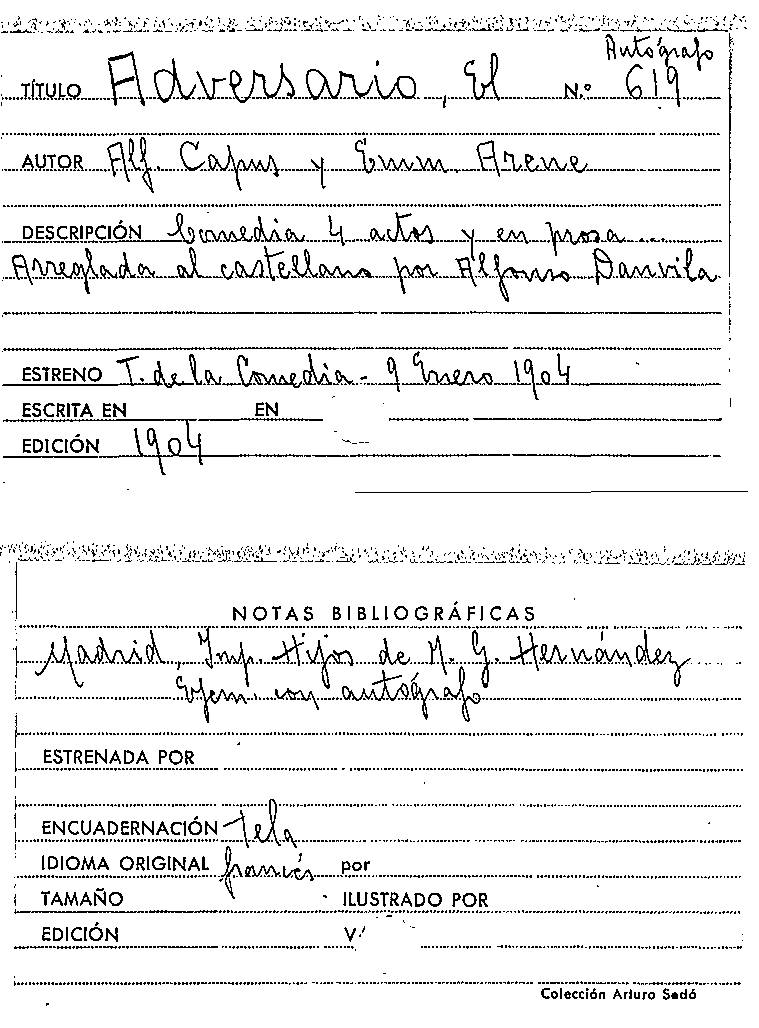 Autógrafo
TÍTULO Adversario, El N.º 619
AUTOR Alf. Capus y Emm. Arene
DESCRIPCIÓN Comedia 4 actos y en prosa...
Arreglada al castellano por Alfonso Danvila
ESTRENO T. de la Comedia - 9 Enero 1904
ESCRITA EN EN
EDICIÓN 1904
NOTAS BIBLIOGRÁFICAS
Madrid, Imp. Hijos de M. G. Hernández
Ejem. con autógrafo
ESTRENADA POR
ENCUADERNACIÓN tela
IDIOMA ORIGINAL francés por
TAMAÑO ILUSTRADO POR
EDICIÓN V.
Colección Arturo Sedó